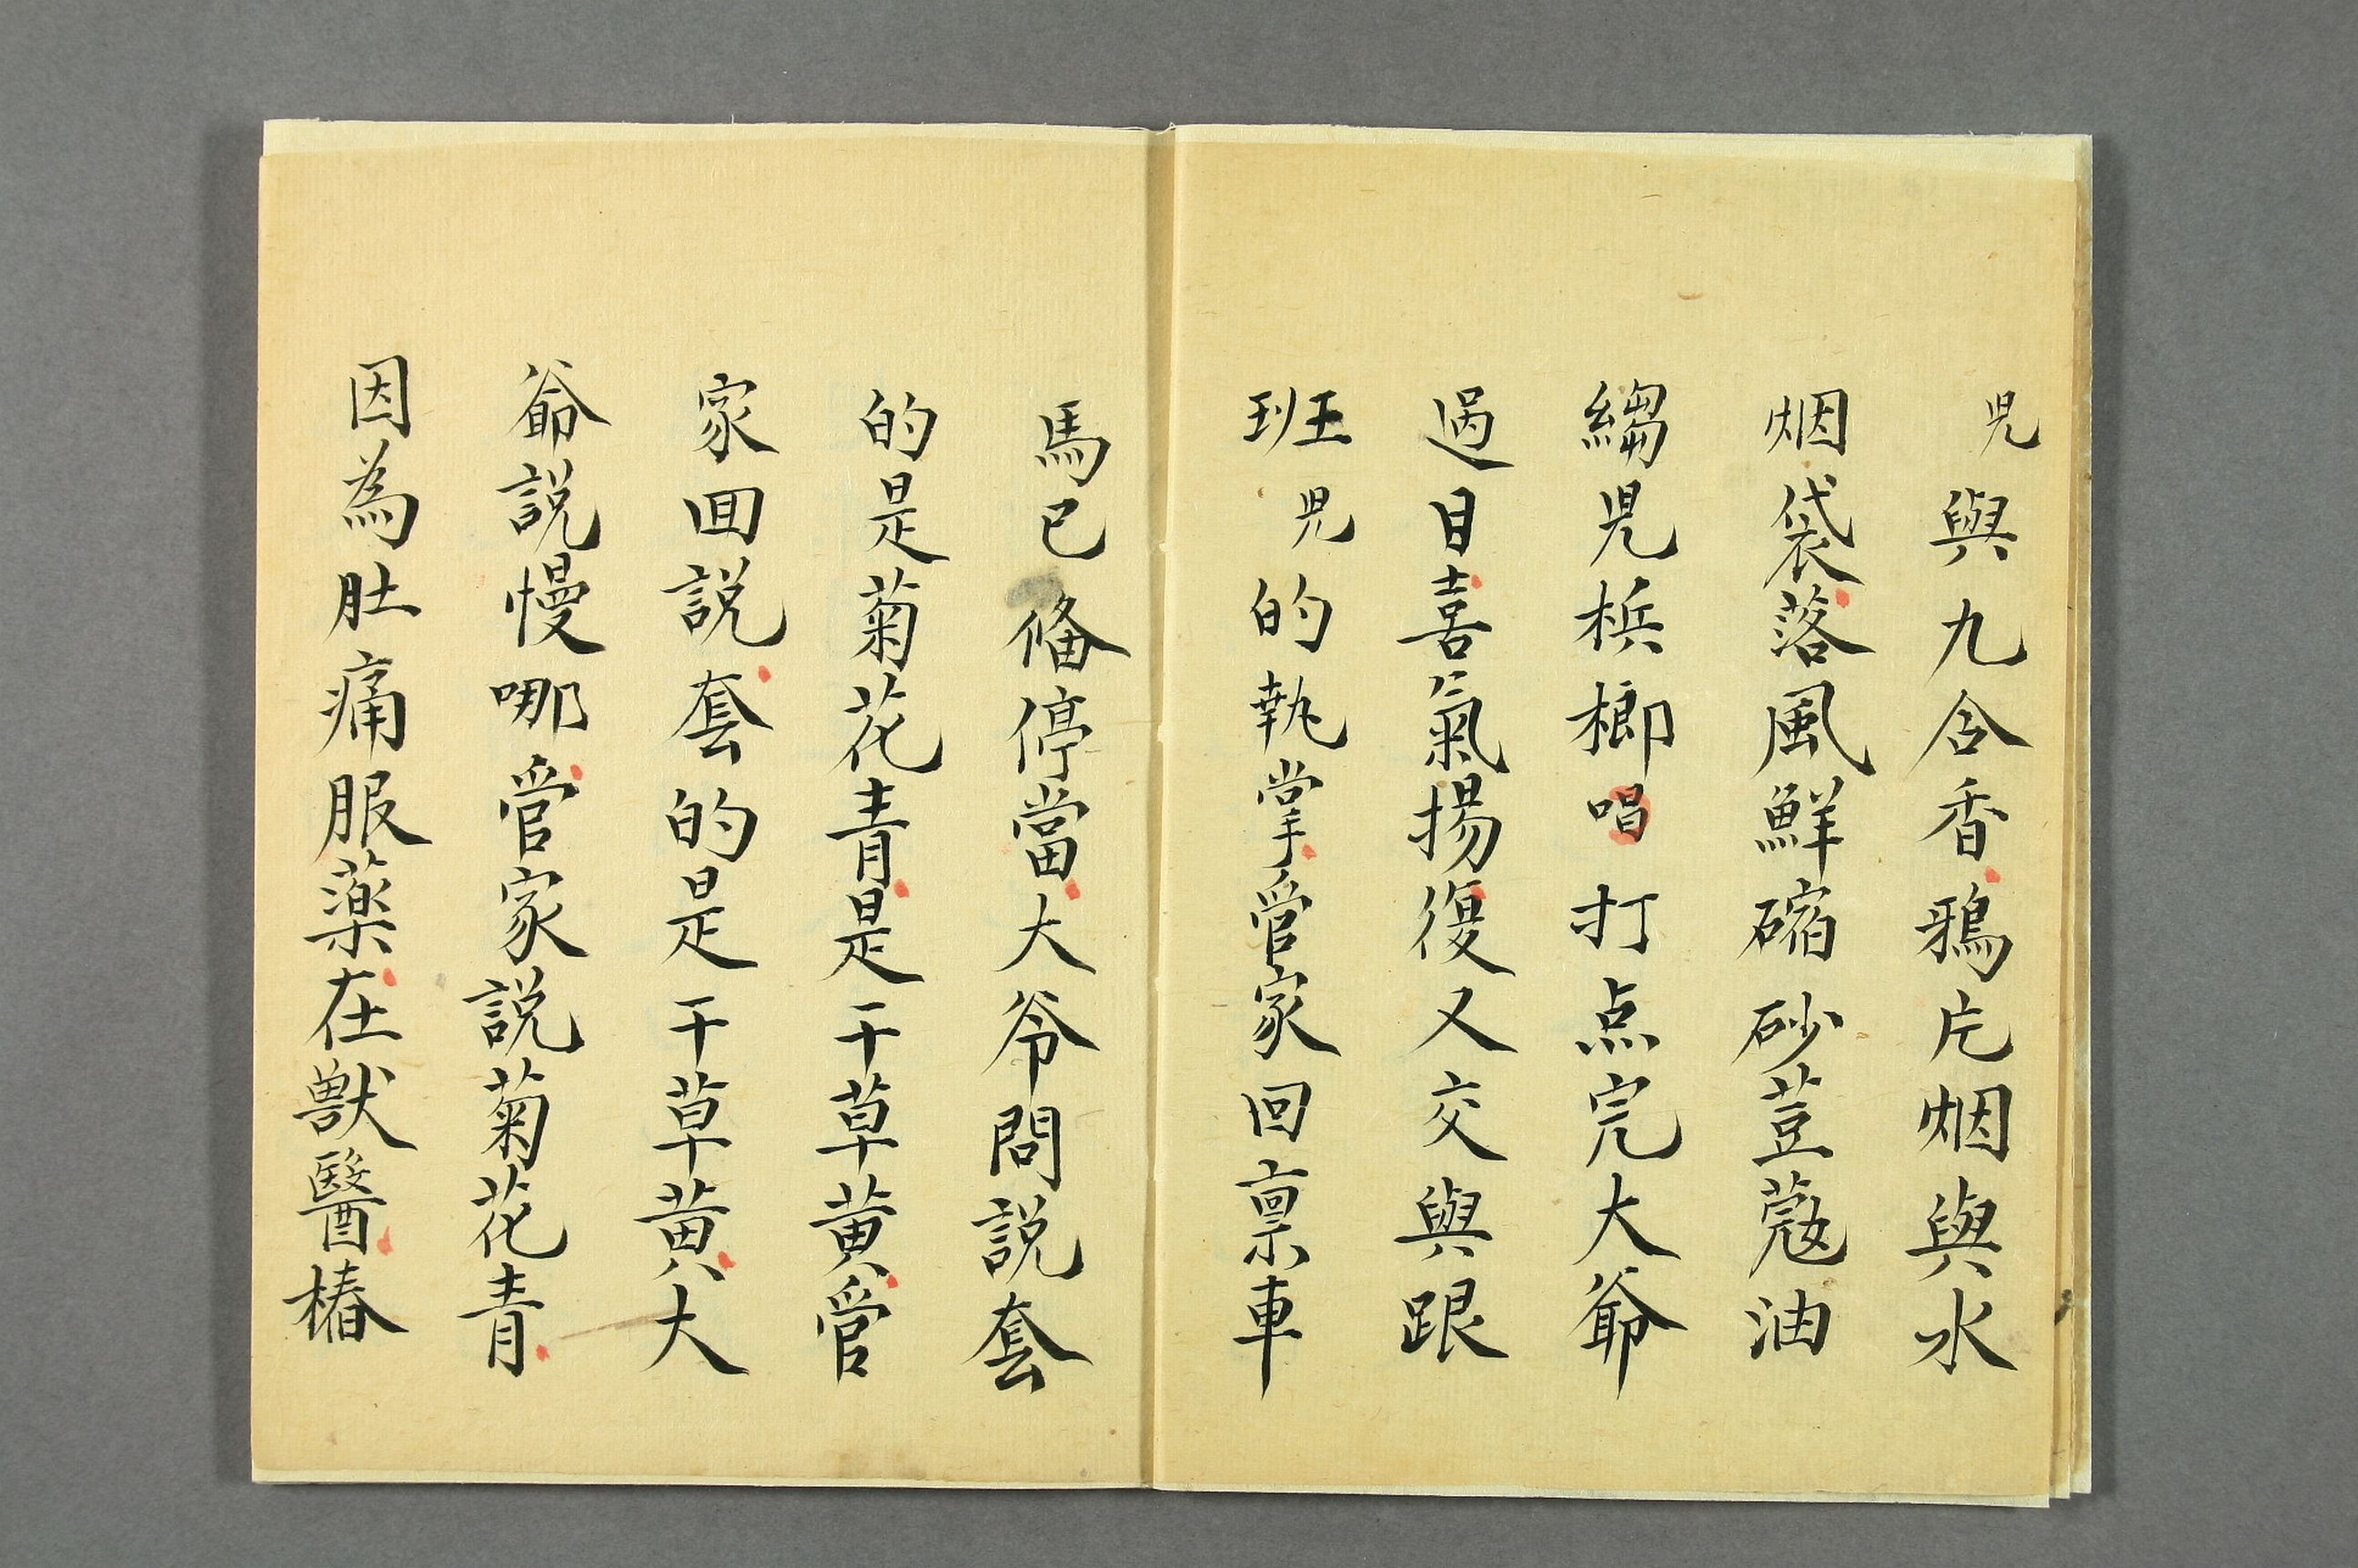 児與九合香鴉片烟與水
烟袋落風鮮硓砂荳蔻油
縐児梹榔唱打点完大爺
過目喜氣揚復又交與跟
班児的執掌管家回禀車
馬已俻停當大爷問説套
的是菊花青是干草黄管
家囬説套的是干草黄大
爺説慢哪管家説菊花青
因為肚痛服藥在獸醫樁